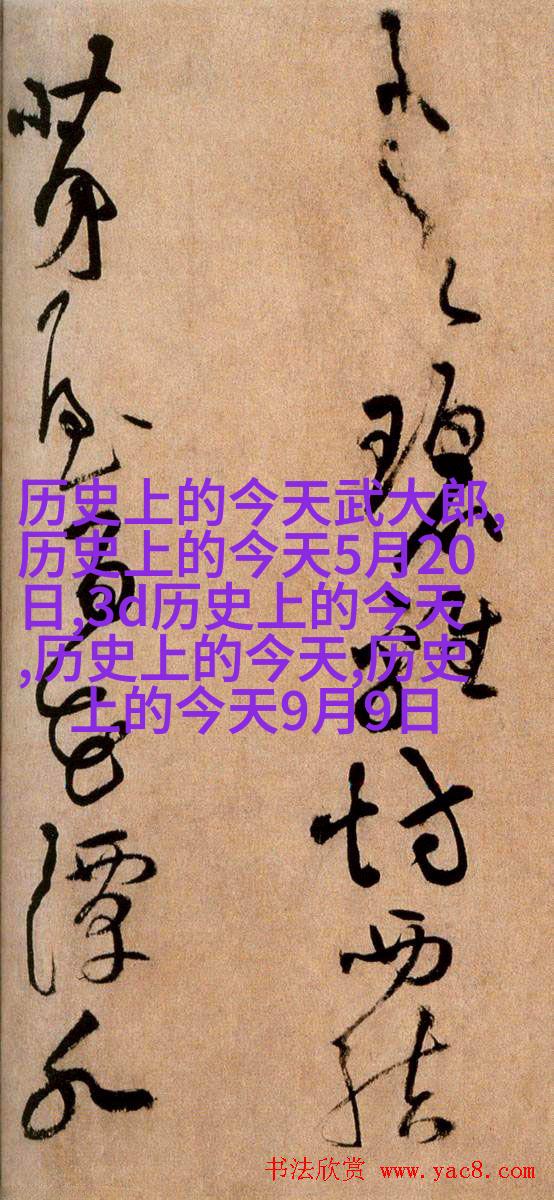 碧雞坊西結
茅屋百花潭水
历史上的今天武大郎,
历史上的今天5月20
日,3d历史上的今天
,历史上的今天,历史
上的今天9月9日
书法欣赏 www.yac8.com